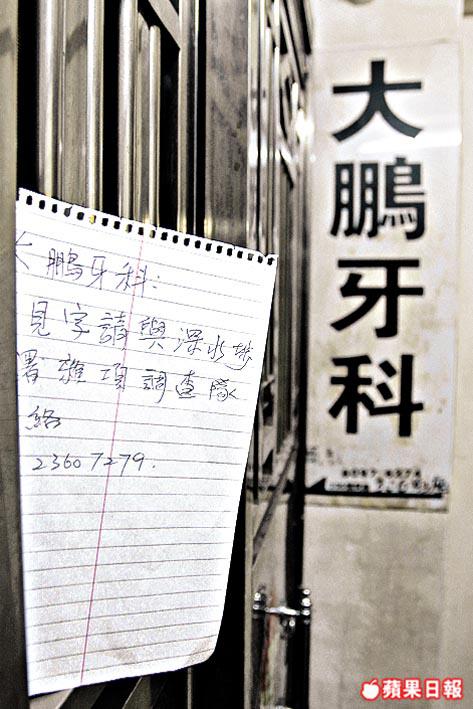 大鵬牙科：
見字請與深水埗
署雜項調查隊
絡
23607279.
大鵬牙科
蘋果日報